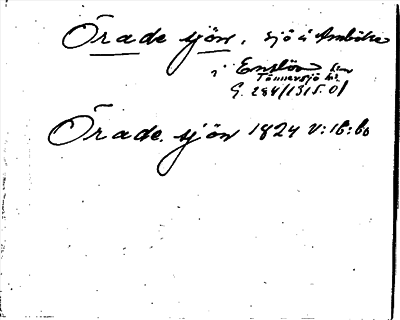 Örade sjön, sjö i Ambökе
i Enslöv sn
Tönnersjö hd.
G. 284/1315.01
Örade sjön 1824 V:16:60